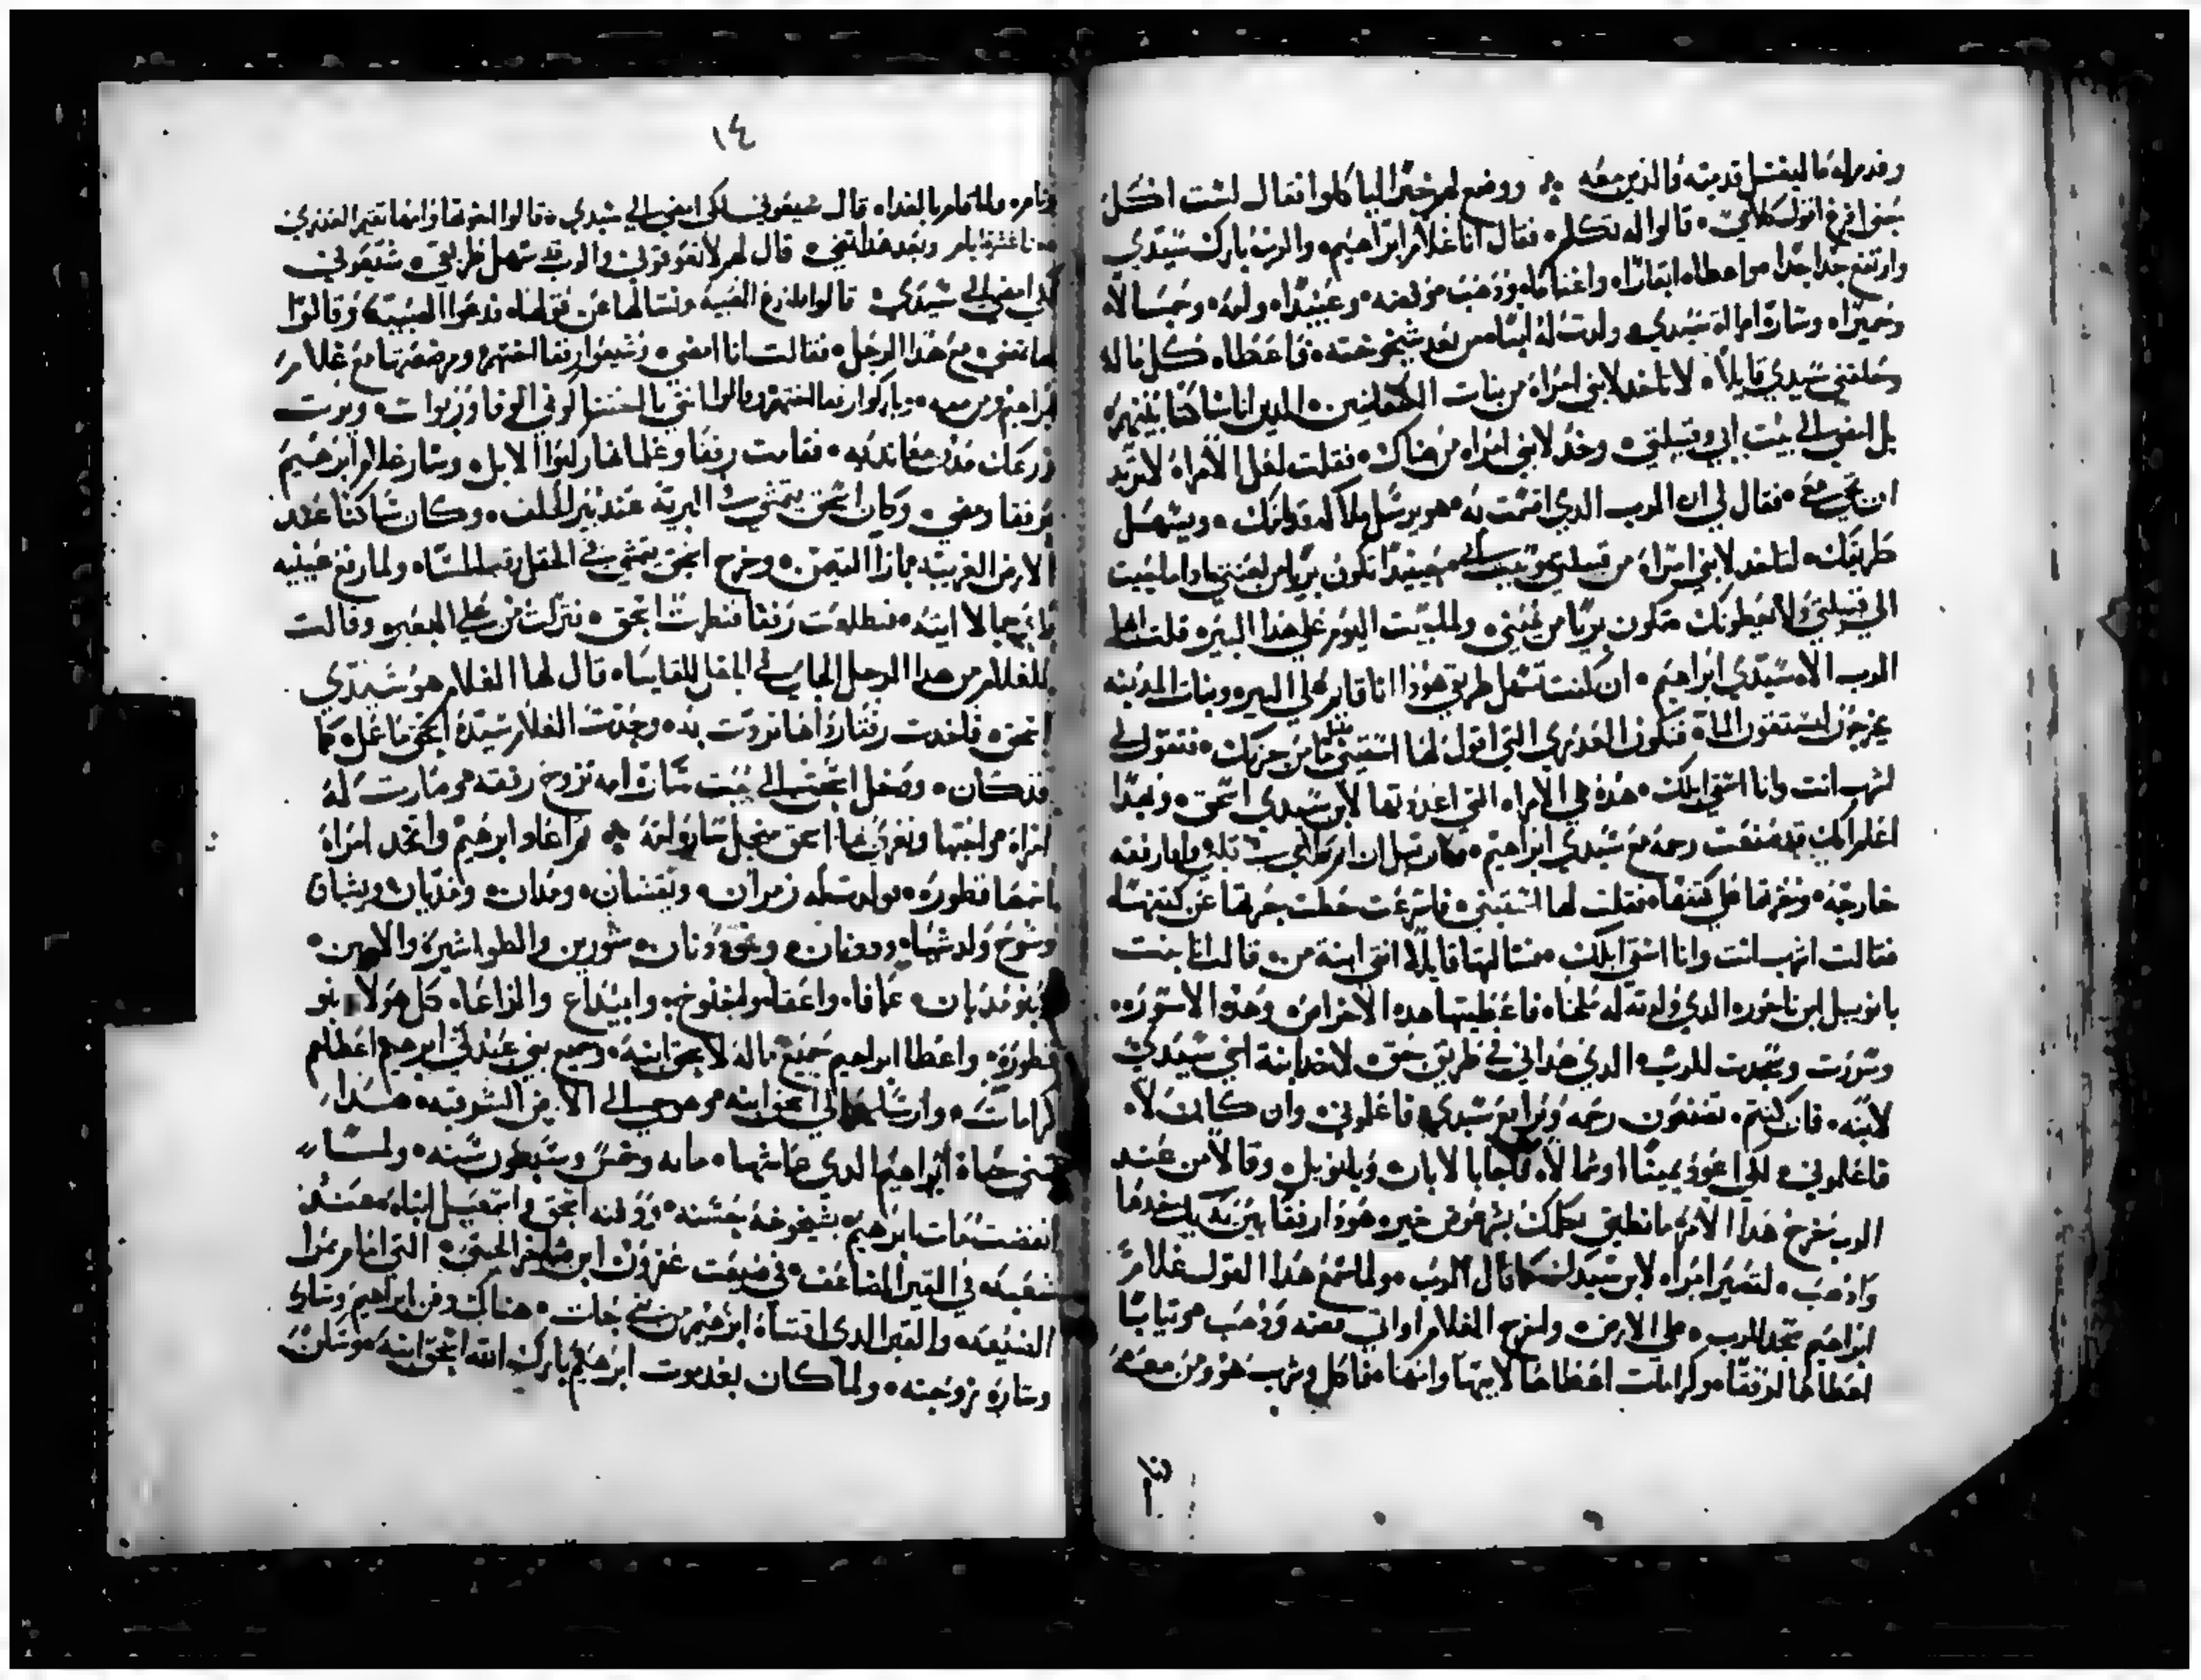 وقدم له ما ليغسل قدميه والذين معه ۞ ووضع لهم خبزا لياكلوا فقال لست اكل
حتى افرغ اقول كلامي • قالوا له تكلم • فقال انا غلام ابراهيم • والرب بارك سيدي
وارتفع جدا جدا واعطاه ابقارا واغناما وذهب وفضه • وعبيدا • وجمالا
وحميرا • وسارة امراة سيدي ولدت له ابنا من بعد شيخوخته • فاعطاه كل ماله
وحلفني سيدي قايلا • لا تاخد لابني امراة من بنات الكنعانيين • الدين انا ساكنا بينهم
بل امضي الى بيت ابي وقبيلتي • وخد لابني امراه من هناك • فقلت لعل الامراة لا تريد
ان تجي معي • فقال لي ان الرب الدي • هو يرسل ملاكه قدامك • ويسهل
طريقك • لتاخد لابني امراة من قبيلتي حينيدا تكون بريا من لعنتي • اذا مضيت
الى قبيلتي ولا يعطونك فتكون بريا من • ولما اتيت اليوم على هدا البير • قلت
الرب الاه سيدي ابراهيم • ان كنت تسهل طريقي هودا انا قايم على البير • وبنات المدينه
يخرجن يستقون الما • فتكون العدرى التي اقول لها اسقيني ما من جرتك • فتقول لي
اشرب انت وانا اسقي ابلك • هده هي الامراه التي اعددتها لابن سيدي اسحق • وبهدا
اعلم انك قد صنعت رحمه مع سيدي ابراهيم • قبل ان قلبي وادا رفقه
خارجه • وجرتها على كتفها • فقلت لها اسقيني • فاسرعت حطت جرتها عن كتفها
فقالت اشرب انت وانا اسقي ابلك • فسالتها قايلا انتي ابنة من • قالت انا بنت
باتوييل ابن ناحور • الدي ولدته له ملخا • فاعطيتها هده الاخرام • وهده الاسوره
وسررت وسجدت للرب • الدي هداني في طريق حق • لاخد ابنة اخي سيدي
لابنه • فان كنتم • تصنعون رحمه وبرا مع سيدي فاعلموني • وان كان لا •
فاعلموني • لكي اعود يمينا او شمالا • فاجابا لابان وباتوييل • وقالا من عند
الرب خرج هدا الامر • ما نطيق نكلمك بشر عوض خير • هودا رفقا بين يديك خدها
وادهب • لتصير امراه لابن سيدك كما قال الرب • ولما سمع هدا القول غلام
ابراهيم سجد للرب • على الارض • واخرج الغلام اواني فضه وذهب وتيابا
اعطاها لرفقا • وكرامات اعطاها لابيها وامها • فاكل وشرب هو ومن معه
١٤
ولما قام بالغداه قال شيعوني لكي امضي الى سيدي • قالوا اخوتها وامها تقيم العدرى
معنا عشرة ايام وبعد هدا تمضي • قال لهم لا تعوقوني والرب قد سهل طريقي • شيعوني
لكي امضي الى سيدي • قالوا ندع الصبيه ونسالها عن قولها • فدعوا الصبيه وقالوا
لها تمضي • مع هدا الرجل • فقالت انا امضي • وشيعوا رفقا اختهم ومرضعتها مع غلام
ابراهيم ومن معه • وباركوا رفقا اختهم وقالوا انتي يا اختنا كوني الوفا وربوات • ويرت
زرعك مدن معانديه • فقامت رفقا وغلمانها ركبوا الابل • وسار غلام ابرهيم
برفقا ومضى • وكان اسحق يتمشى في البريه عند بير الحلف • وكان ساكنا عند
الارض الغربيه مما يلي التيمن • وخرج اسحق يتمشى في الحقل وقت المسا • ولما رفع عينيه
راى جمالا اتيه • فتطلعت رفقا فنظرت اسحق • فنزلت من على البعير وقالت
للغلام من هدا الرجل الجاي في الحقل للقايسا • قال لها الغلام هو سيدي
اسحق • فاخدت رفقا رداها فتردت به • وحدت الغلام سيده اسحق ما عمل • كما
قد كان • ودخل اسحق الى بيت سارة امه تزوج رفقه • وصارت له
امراه • واحبها وتعزى اسحق من اجل سارة امه ۞ تم عاد ابرهيم واتخد امراة
اسمها قطوره • فولدت له زمران • ويقشان • ومدان • ومديان • ويشباق
وشوح • ولد شبا • وددان • شورين والطواشيم والاميين •
وبنو مديان • عافا • واعفا • واخنوخ • وابيداع والزاعا • كل هولا بنو
قطوره • واعطا ابراهيم جميع ماله لاسحق ابنه • وجميع بني ابرهيم اعطاهم
كرامات • وارسلهم اسحق ابنه وهو حي الى الارض الشرقيه • هدا
سني حياة ابراهيم الدي عاشها • مايه وخمس وسبعون سنه • ولما
انقضت مات ابرهيم بشيخوخة حسنه • ودفنه اسحق واسمعيل ابناه عند
شعبه • في القبر المضاعف • في ضيعة عفرون ابن صاخر الحيتي • التي امام ممرا
الضيعه • والقبر الدي اقتناه ابرهيم من بني حات • هناك دفن ابراهيم وساره
وساره زوجته • ولما كان بعد موت ابرهيم بارك الله اسحق ابنه • وسكن